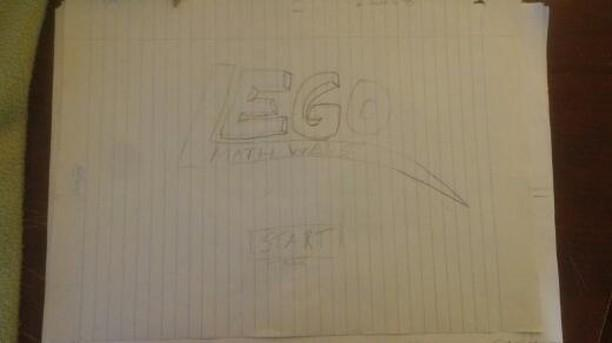 LEGO
MATH WARS
START